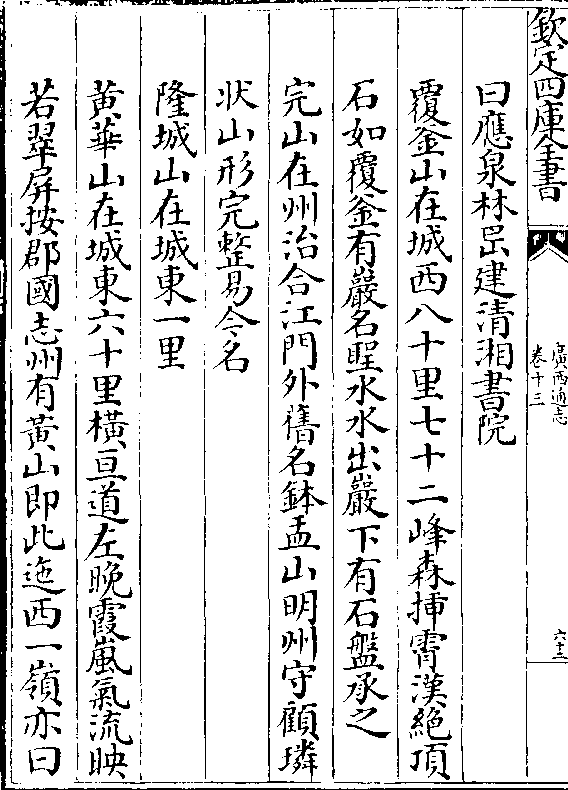 欽定四庫全書
廣西通志
卷十三
六十三
曰應泉林岊建清湘書院
覆釡山在城西八十里七十二峰森揷霄漢絶頂
石如覆釡有巖名聖水水出巖下有石盤承之
完山在州治合江門外舊名鉢盂山明州守顧璘
狀山形完整易今名
隆城山在城東一里
黄華山在城東六十里橫亘道左晚霞嵐氣流映
若翠屏按郡國志州有黄山即此迤西一嶺亦曰